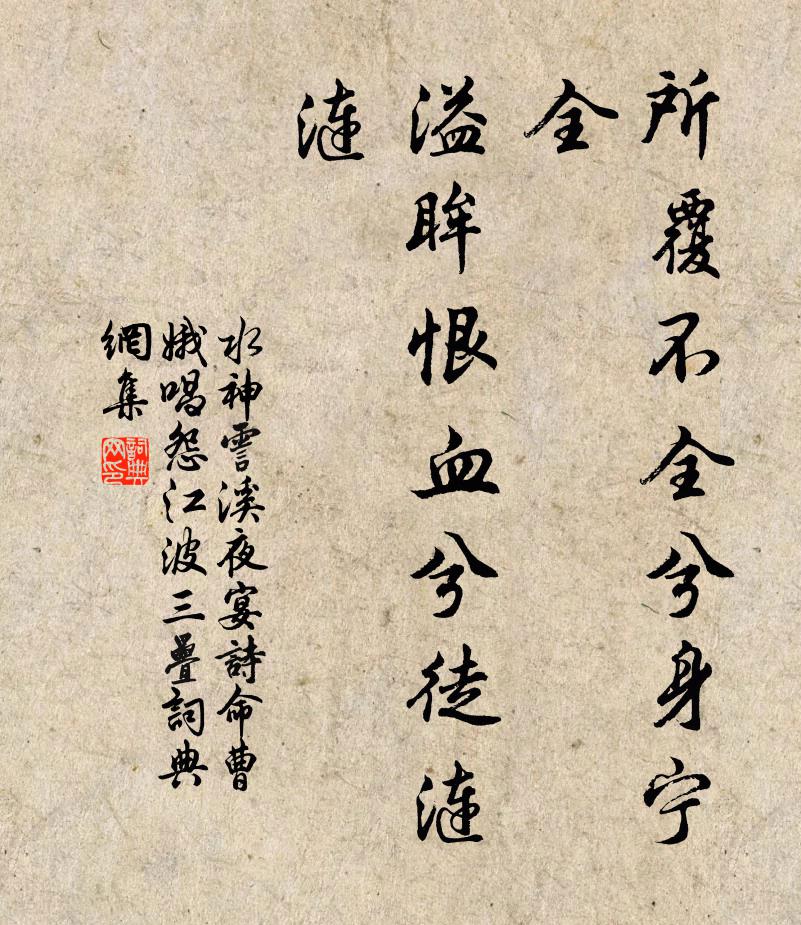 所覆不全兮身宁
全
溢眸恨血兮徒漣
漣
水神雲溪夜宴詩命曹
娥唱怨江波三疊詞典
網集
詞典
网印